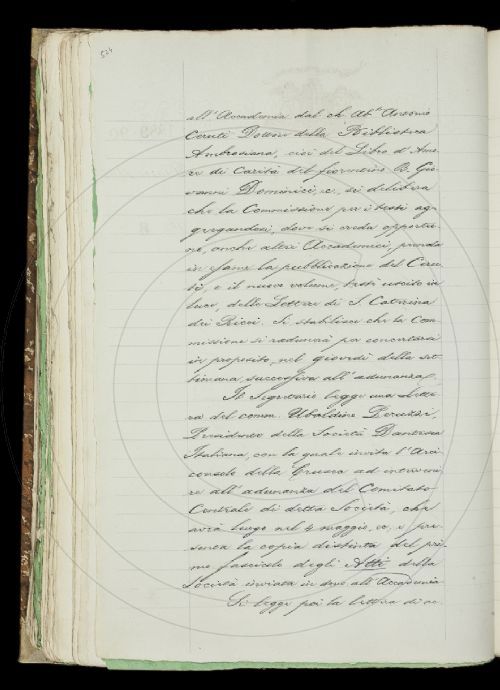 524
all'Accademia dal ch. Ab.e Antonio
Ceruti Dottore della Biblioteca
Ambrosiana, cioè del Libro d'Amo-
re di Carità del fiorentino B. Gio-
vanni Dominici, e, si delibera
che la Commissione per i testi ag-
gregandosi, dove si creda opportu-
no, anche altri Accademici, prenda
in esame la pubblicazione del Ceru-
ti, e il nuovo volume, testè uscito in
luce, delle Lettere di S. Caterina
dei Ricci. Si stabilisce che la Com-
missione si radunerà per concertarsi
in proposito, nel giovedì della set-
timana successiva all'adunanza.
Il Segretario legge una Lette-
ra del comm. Ubaldino Peruzzi,
Presidente della Società Dantesca
Italiana, con la quale invita l'Arci-
consolo della Crusca ad interveni-
re all'adunanza del Comitato
Centrale di detta Società, che
avrà luogo nel 4 maggio, e, e pre-
senta la copia distinta del pri-
mo fascicolo degli Atti della
Società inviata in dono all'Accademia
Si legge poi la lettera di ac-